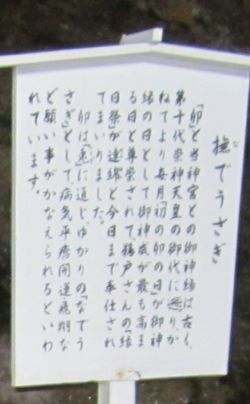 撫でうさぎ
「卯と当神宮との御神縁は古く、
第十代崇神天皇の御代に遡り、か
ねてより毎月「初の卯の日」が御神
縁の日として御神威が最も高ま
る日とされて鵜戸さんの「縁
日祭」が連綿と今日まで奉仕され
てまいりました。
卯は「兎」に通じ、ゆかりの「なでう
さぎ」として病気平癒、開運飛翔な
ど願い事がかなえられるといわ
れています。